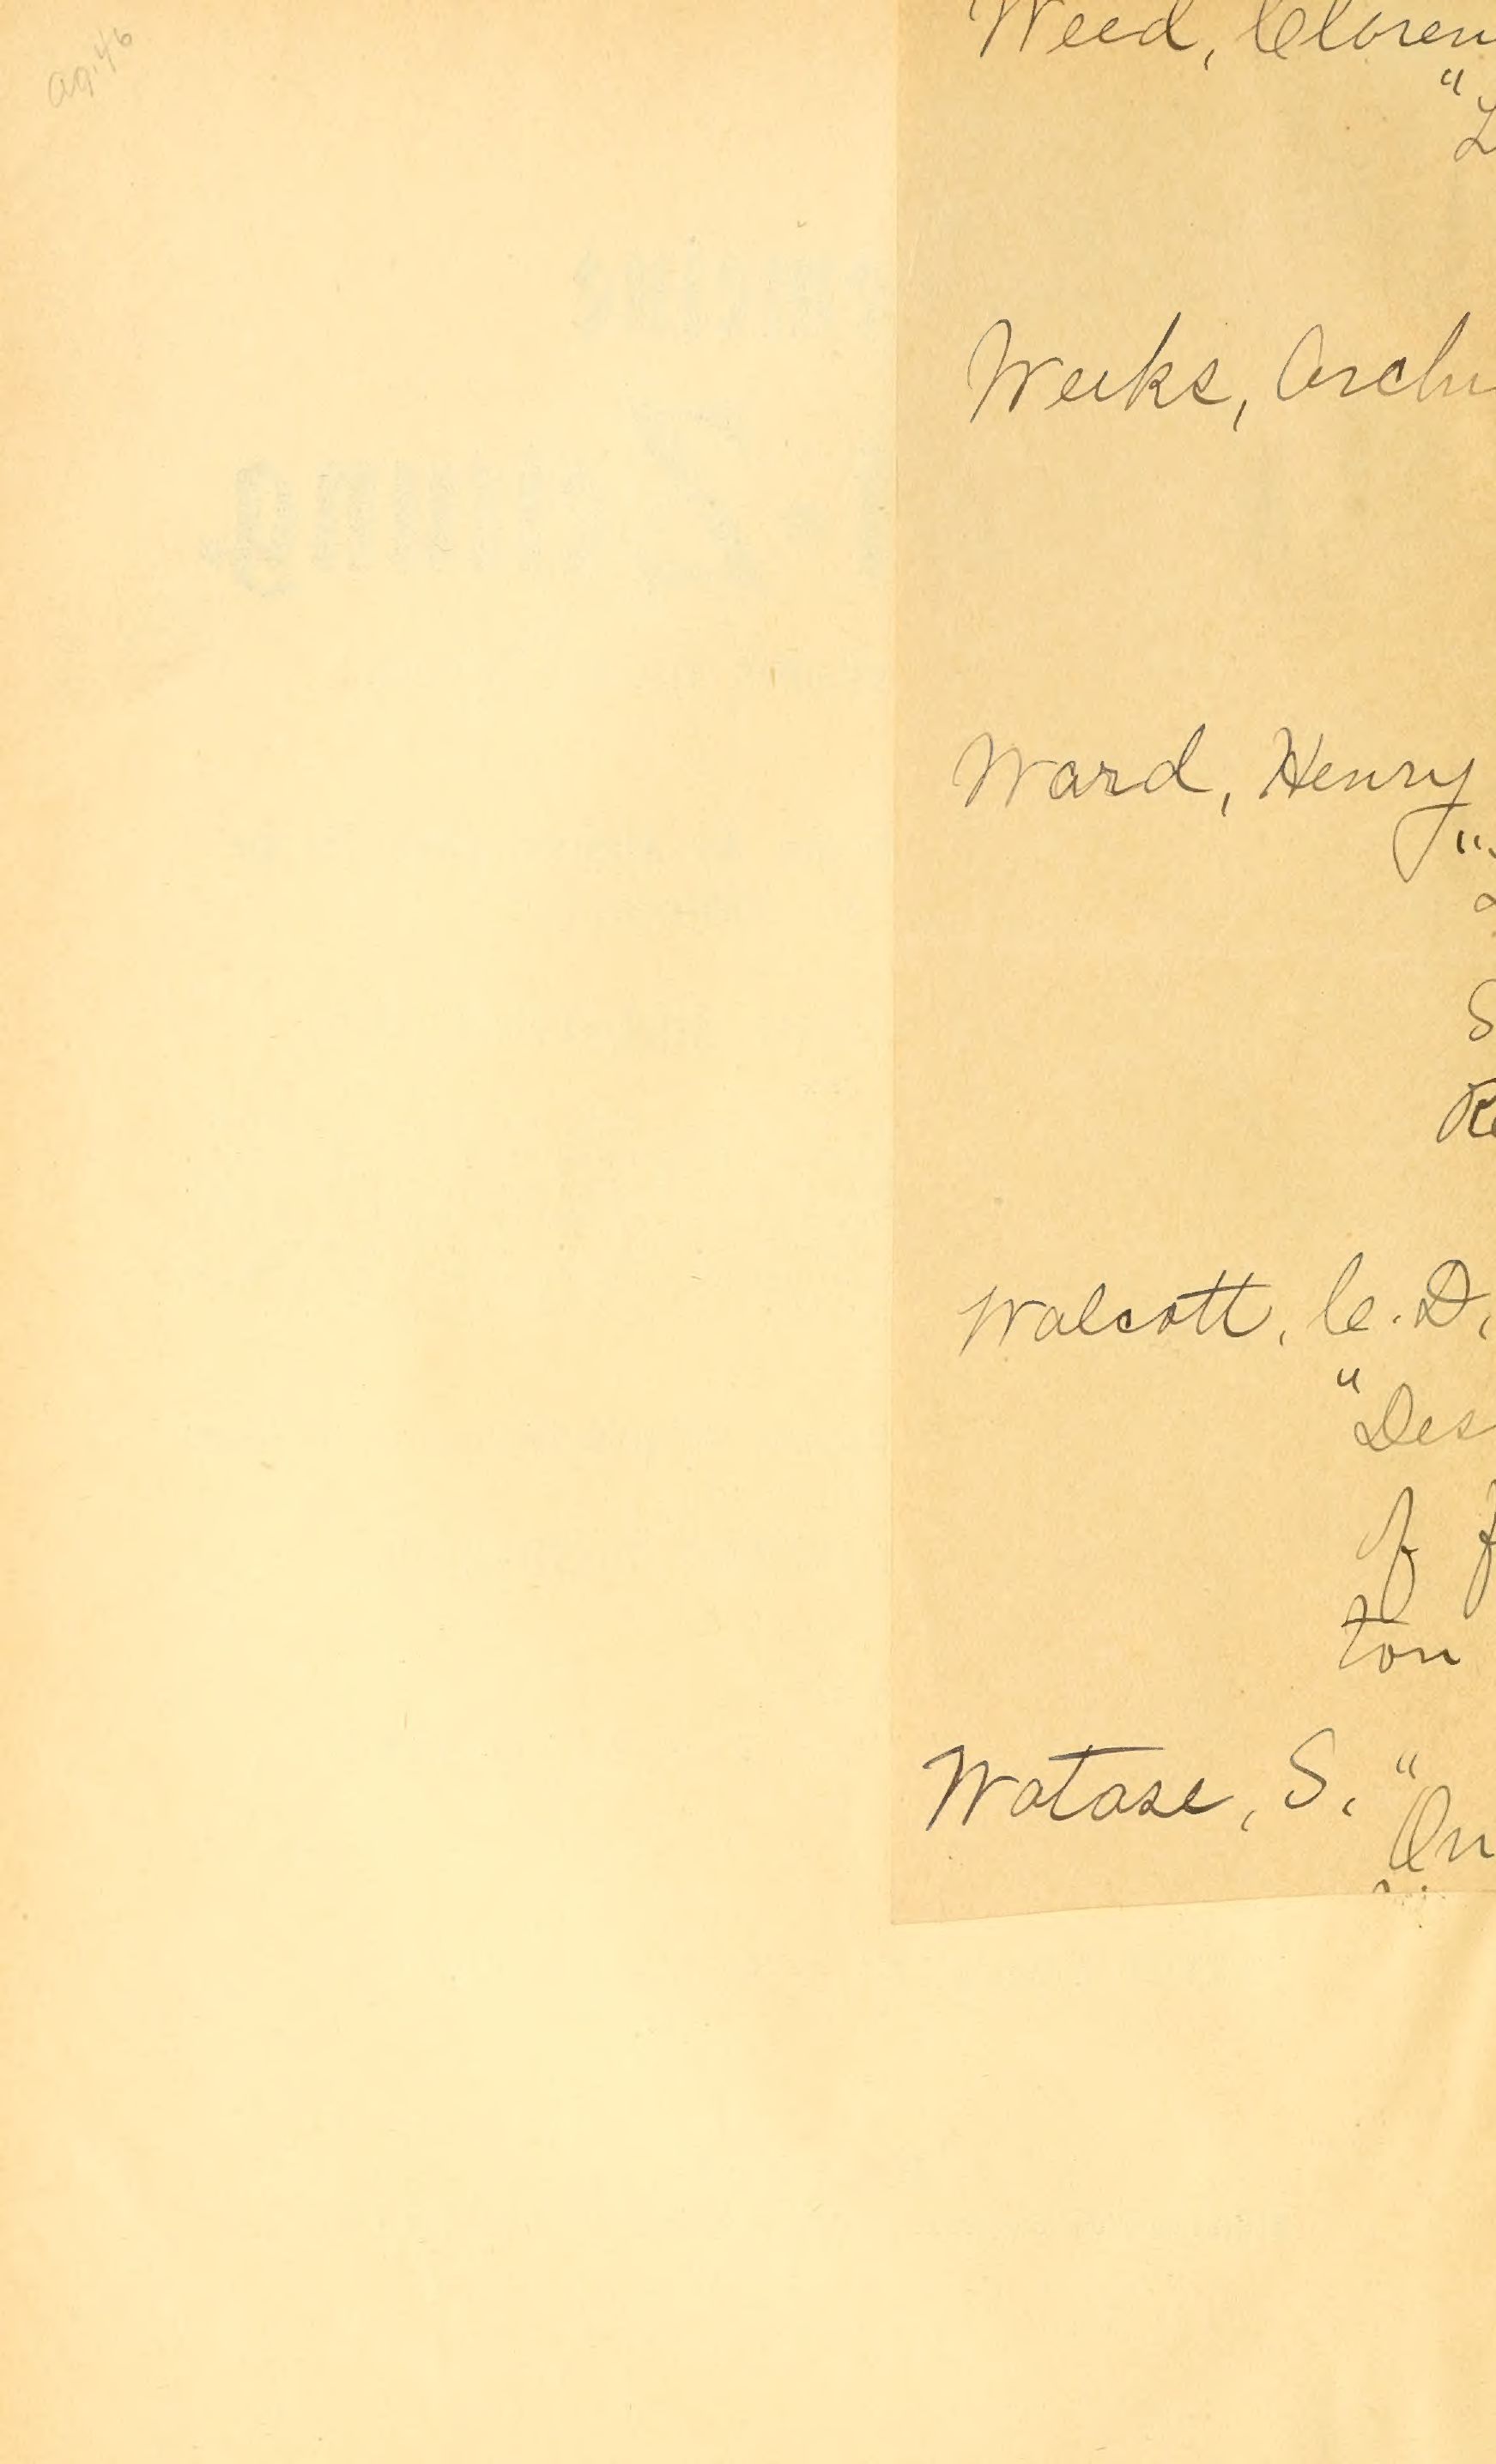 ag. 46
Weed, Claren
"
Weeks, Arch
Ward, Henry
"
S
Re
Walcott, C. D.
"Des
of f
ton
Watase, S. "
On